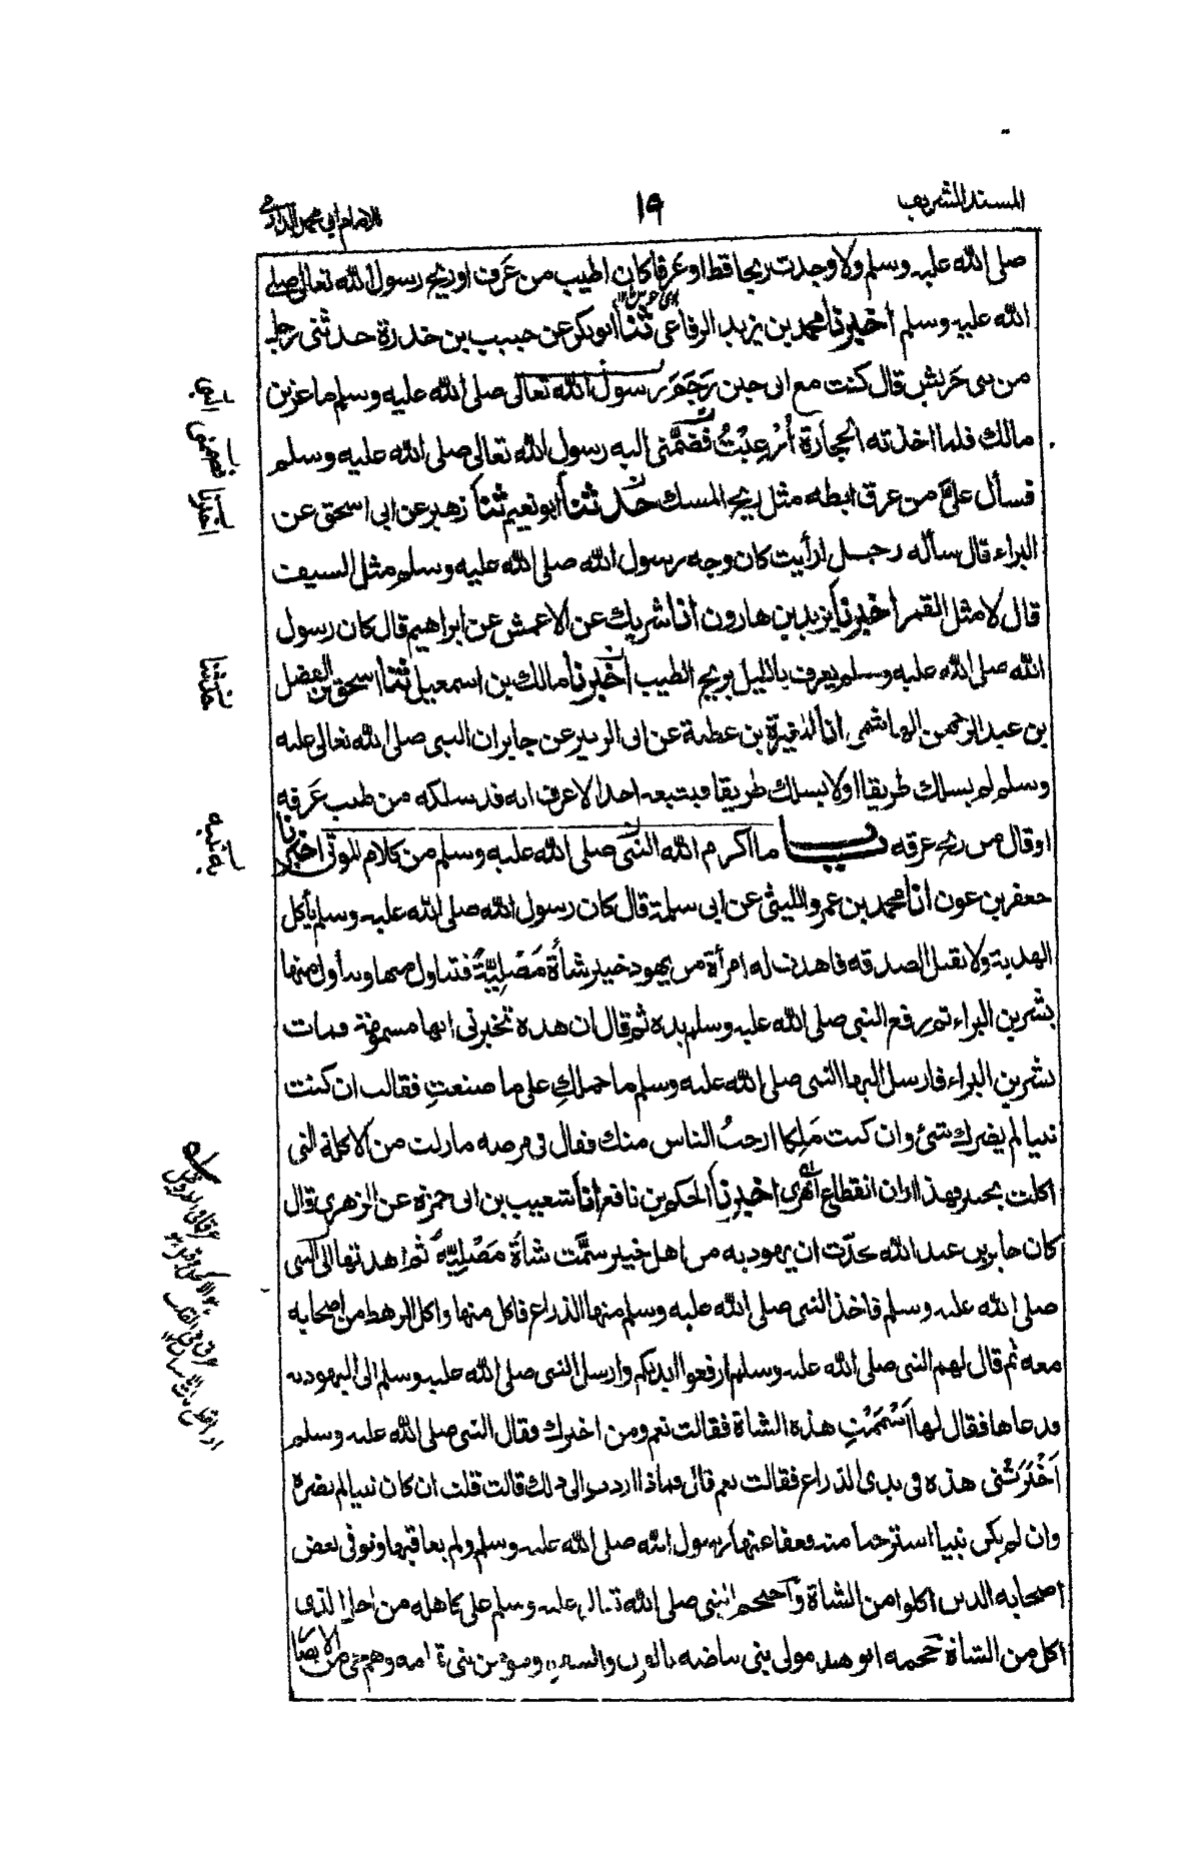 المسند الشريف
١٩
للامام ابي محمد الدارمي
صلى الله عليه وسلم ولا وجدت ريحا قط او عرقا كان اطيب من عَرَف او ريح رسول الله تعالى صلى
الله عليه وسلم اخبرنا محمد بن يزيد الرفاعى ثنا ابو بكر عن حبيب بن خدرة حدثنى رجل
من بنى حَريش قال كنت مع ابى حين رَجَمَ رسول الله تعالى صلى الله عليه وسلم ماعز بن
مالك فلما اخذته الحجارة أُرْعِبْتُ فضمَّنى اليه رسول الله تعالى صلى الله عليه وسلم
فسأل علىَّ من عرق ابطه مثل ريح المسك حدثنا ابو نعيم ثنا زهير عن ابى اسحق عن
البراء قال سأله رجل ارأيت كان وجه رسول الله صلى الله عليه وسلم مثل السيف
قال لا مثل القمر اخبرنا يزيد بن هارون انا شريك عن الاعمش عن ابراهيم قال كان رسول
الله صلى الله عليه وسلم يعرف بالليل بريح الطيب اخبرنا مالك بن اسمعيل ثنا اسحق بن الفضل
بن عبد الرحمن الهاشمى انا المغيرة بن عطية عن ابى الزبير عن جابر ان النبى صلى الله تعالى عليه
وسلم لم يسلك طريقا او لا يسلك طريقا فيتبعه احد الا عرف انه قد سلكه من طيب عَرَقه
او قال من ريح عرقه باب ما اكرم الله النبى صلى الله عليه وسلم من كلام الموتى اخبرنا
جعفر بن عون انا محمد بن عمرو الليثى عن ابى سلمة قال كان رسول الله صلى الله عليه وسلم يأكل
الهدية ولا يقبل الصدقه فاهدت له امرأة من يهود خيبر شأة مَصْلِيَّةً فتناول منها وتناول منها
بشر بن البراء ثم رفع النبى صلى الله عليه وسلم يده ثم قال ان هذه تخبرنى انها مسمومة فمات
بشر بن البراء فارسل اليها النبى صلى الله عليه وسلم ما حملكِ على ما صنعتِ فقالت ان كنت
نبيا لم يضرك شئ وان كنت مَلِكا ارحتُ الناس منك فقال فى مرضه ما زلت من الاكلة التى
اكلت بخيبر فهذا اوان انقطاع أبهرى اخبرنا الحكم بن نافع انا شعيب بن ابى حمزة عن الزهرى قال
كان جابر بن عبد الله يحدّث ان يهوديه من اهل خيبر سمَّت شأة مَصْلِيَّةً ثم اهدتها الى النبى
صلى الله عليه وسلم فاخذ النبى صلى الله عليه وسلم منها الذراع فاكل منها واكل الرهط من اصحابه
معه ثم قال لهم النبى صلى الله عليه وسلم ارفعوا ايديكم وارسل النبى صلى الله عليه وسلم الى اليهوديه
فدعاها فقال لها أسْمَمْتِ هذه الشاة فقالت نعم ومن اخبرك فقال النبى صلى الله عليه وسلم
اَخْبَرَتْنى هذه فى يدى الذراع فقالت نعم قال فماذا اردت الى ذلك قالت قلت ان كان نبيا لم يضره
وان لم يكن نبيا استرحنا منه فعفا عنها رسول الله صلى الله عليه وسلم ولم يعاقبها وتوفى بعض
اصحابه الذين اكلوا من الشاة واحتجم النبى صلى الله تعالى عليه وسلم على كاهله من اجل الذى
اكل من الشاة حجمه ابو هند مولى بنى بياضه بالقرن والشفرة وهو من بنى ثمامه وهم حى من الانصار
اخبرنا
حدثنا